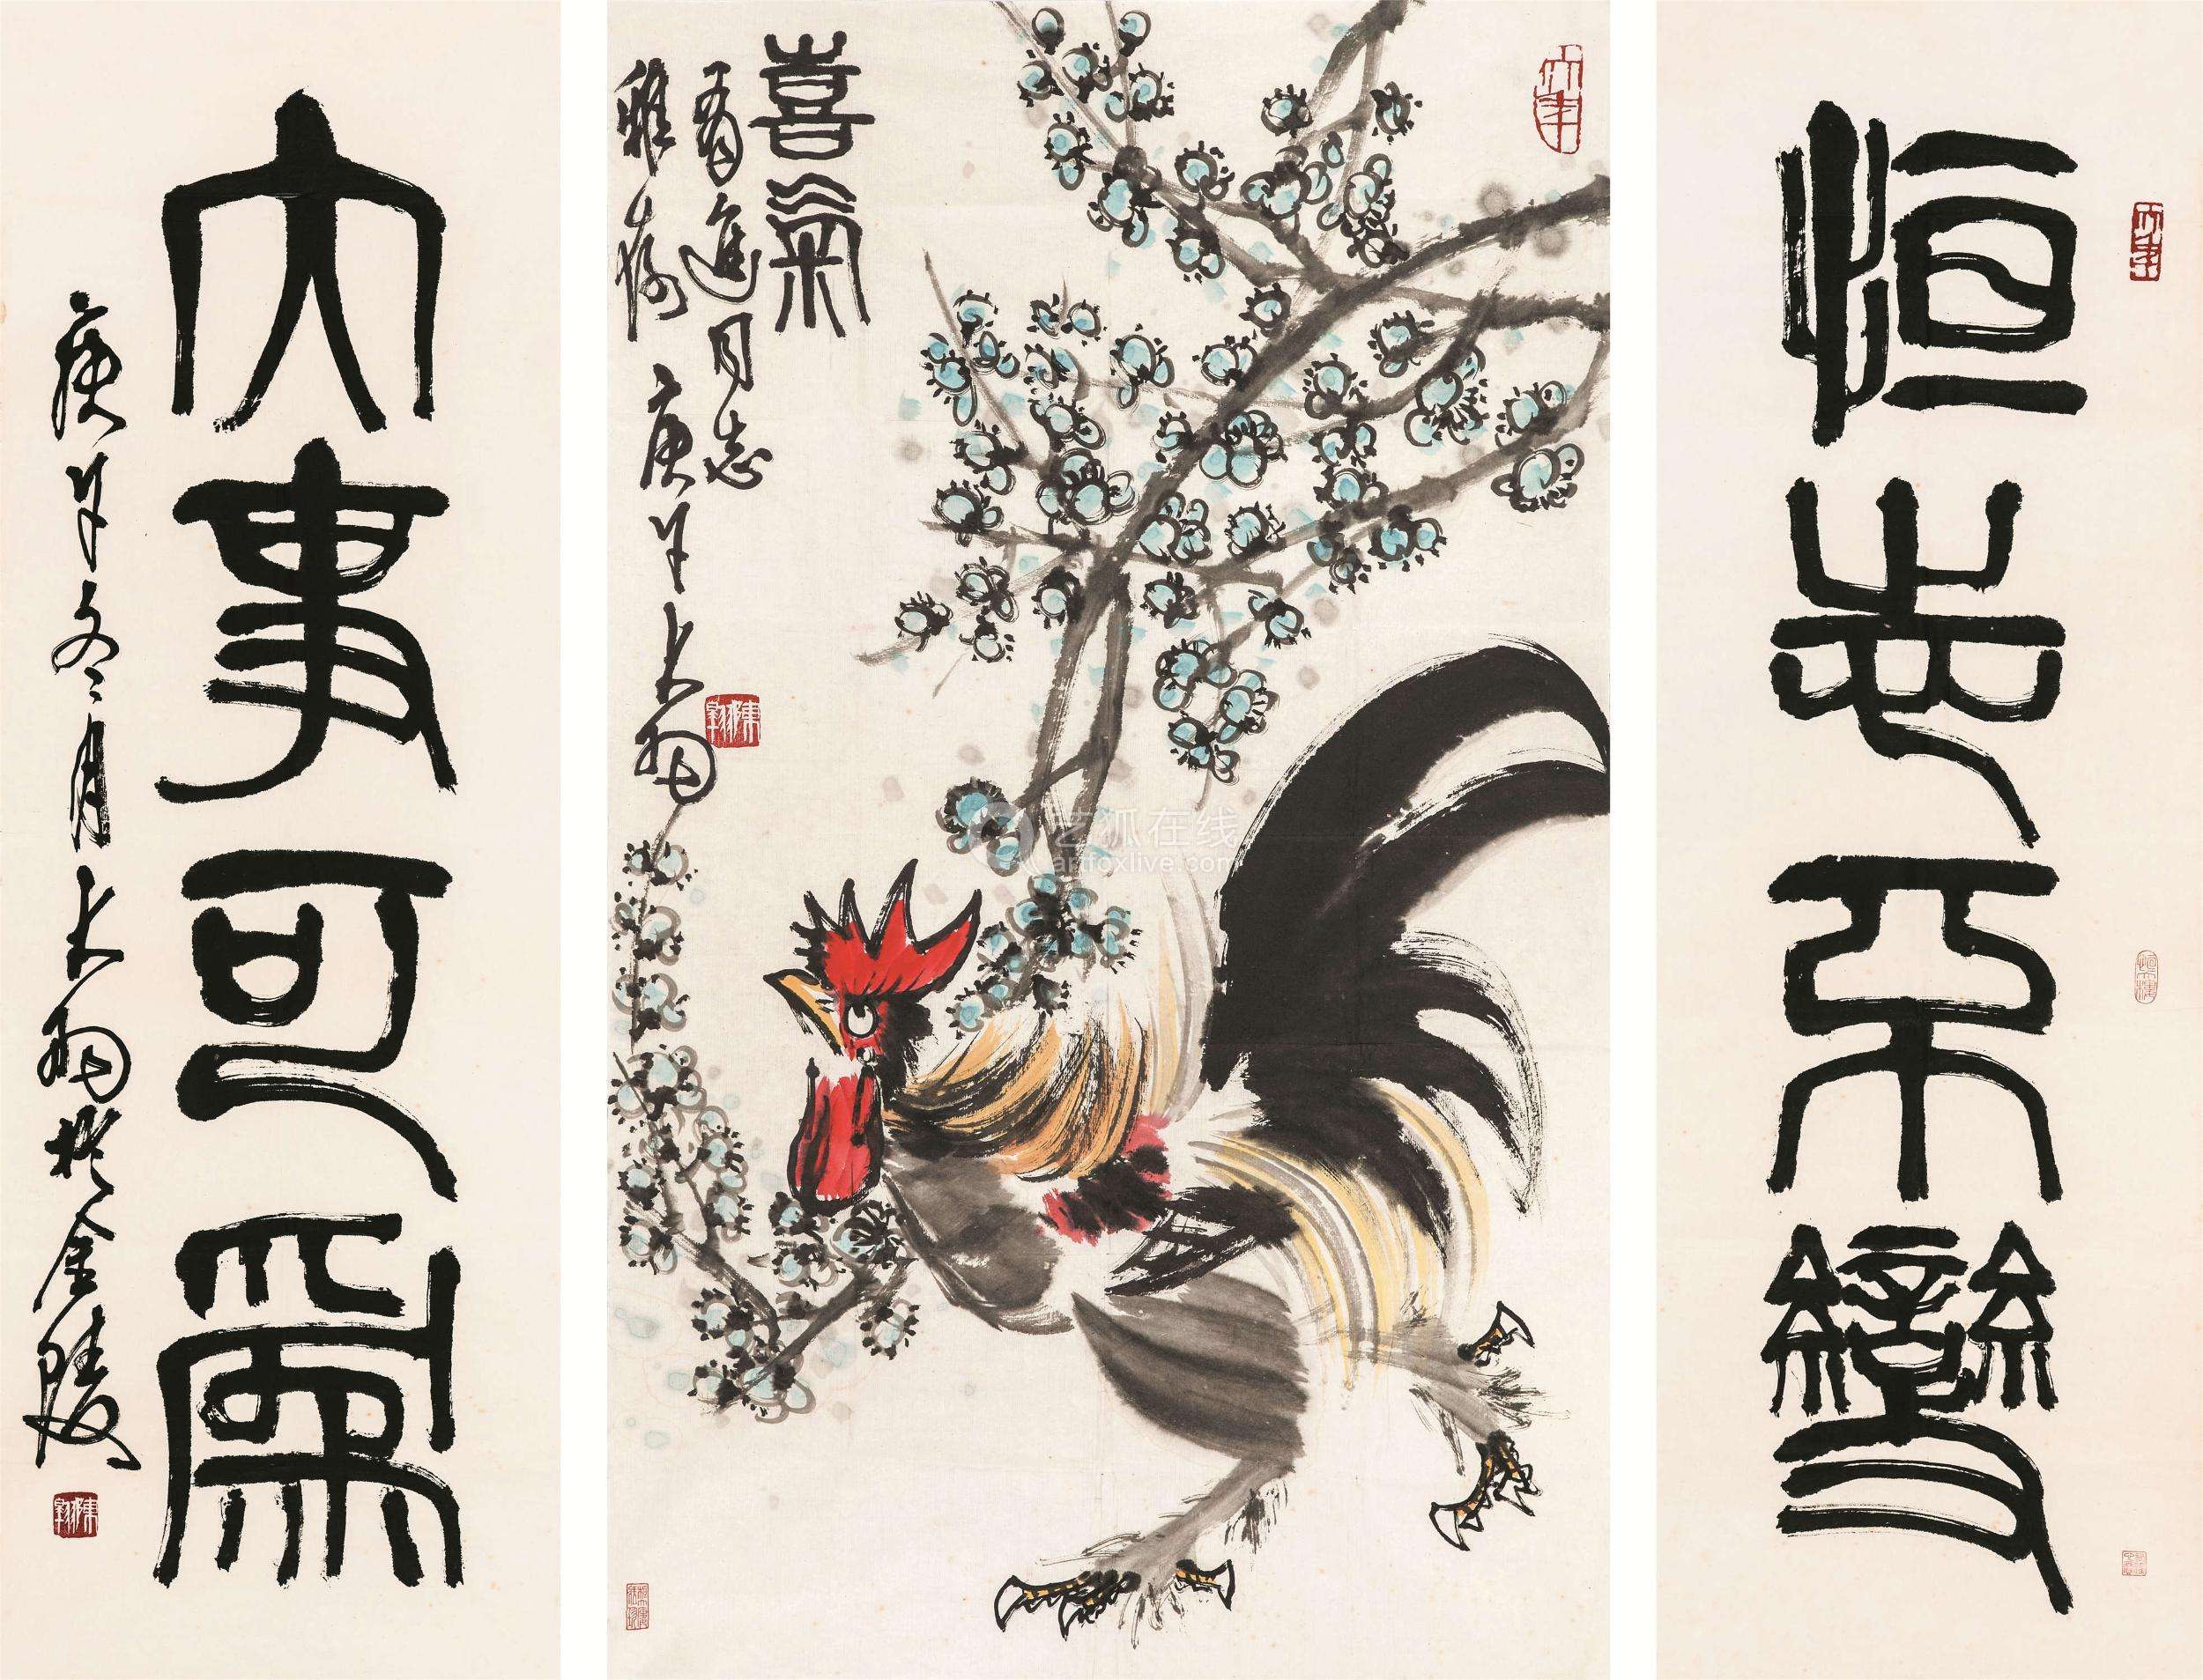 恒志不變
喜氣
進同志
雅屬 庚午 大羽
艺狐在线
artfoxlive.com
大事可為
庚午冬月大羽於金陵